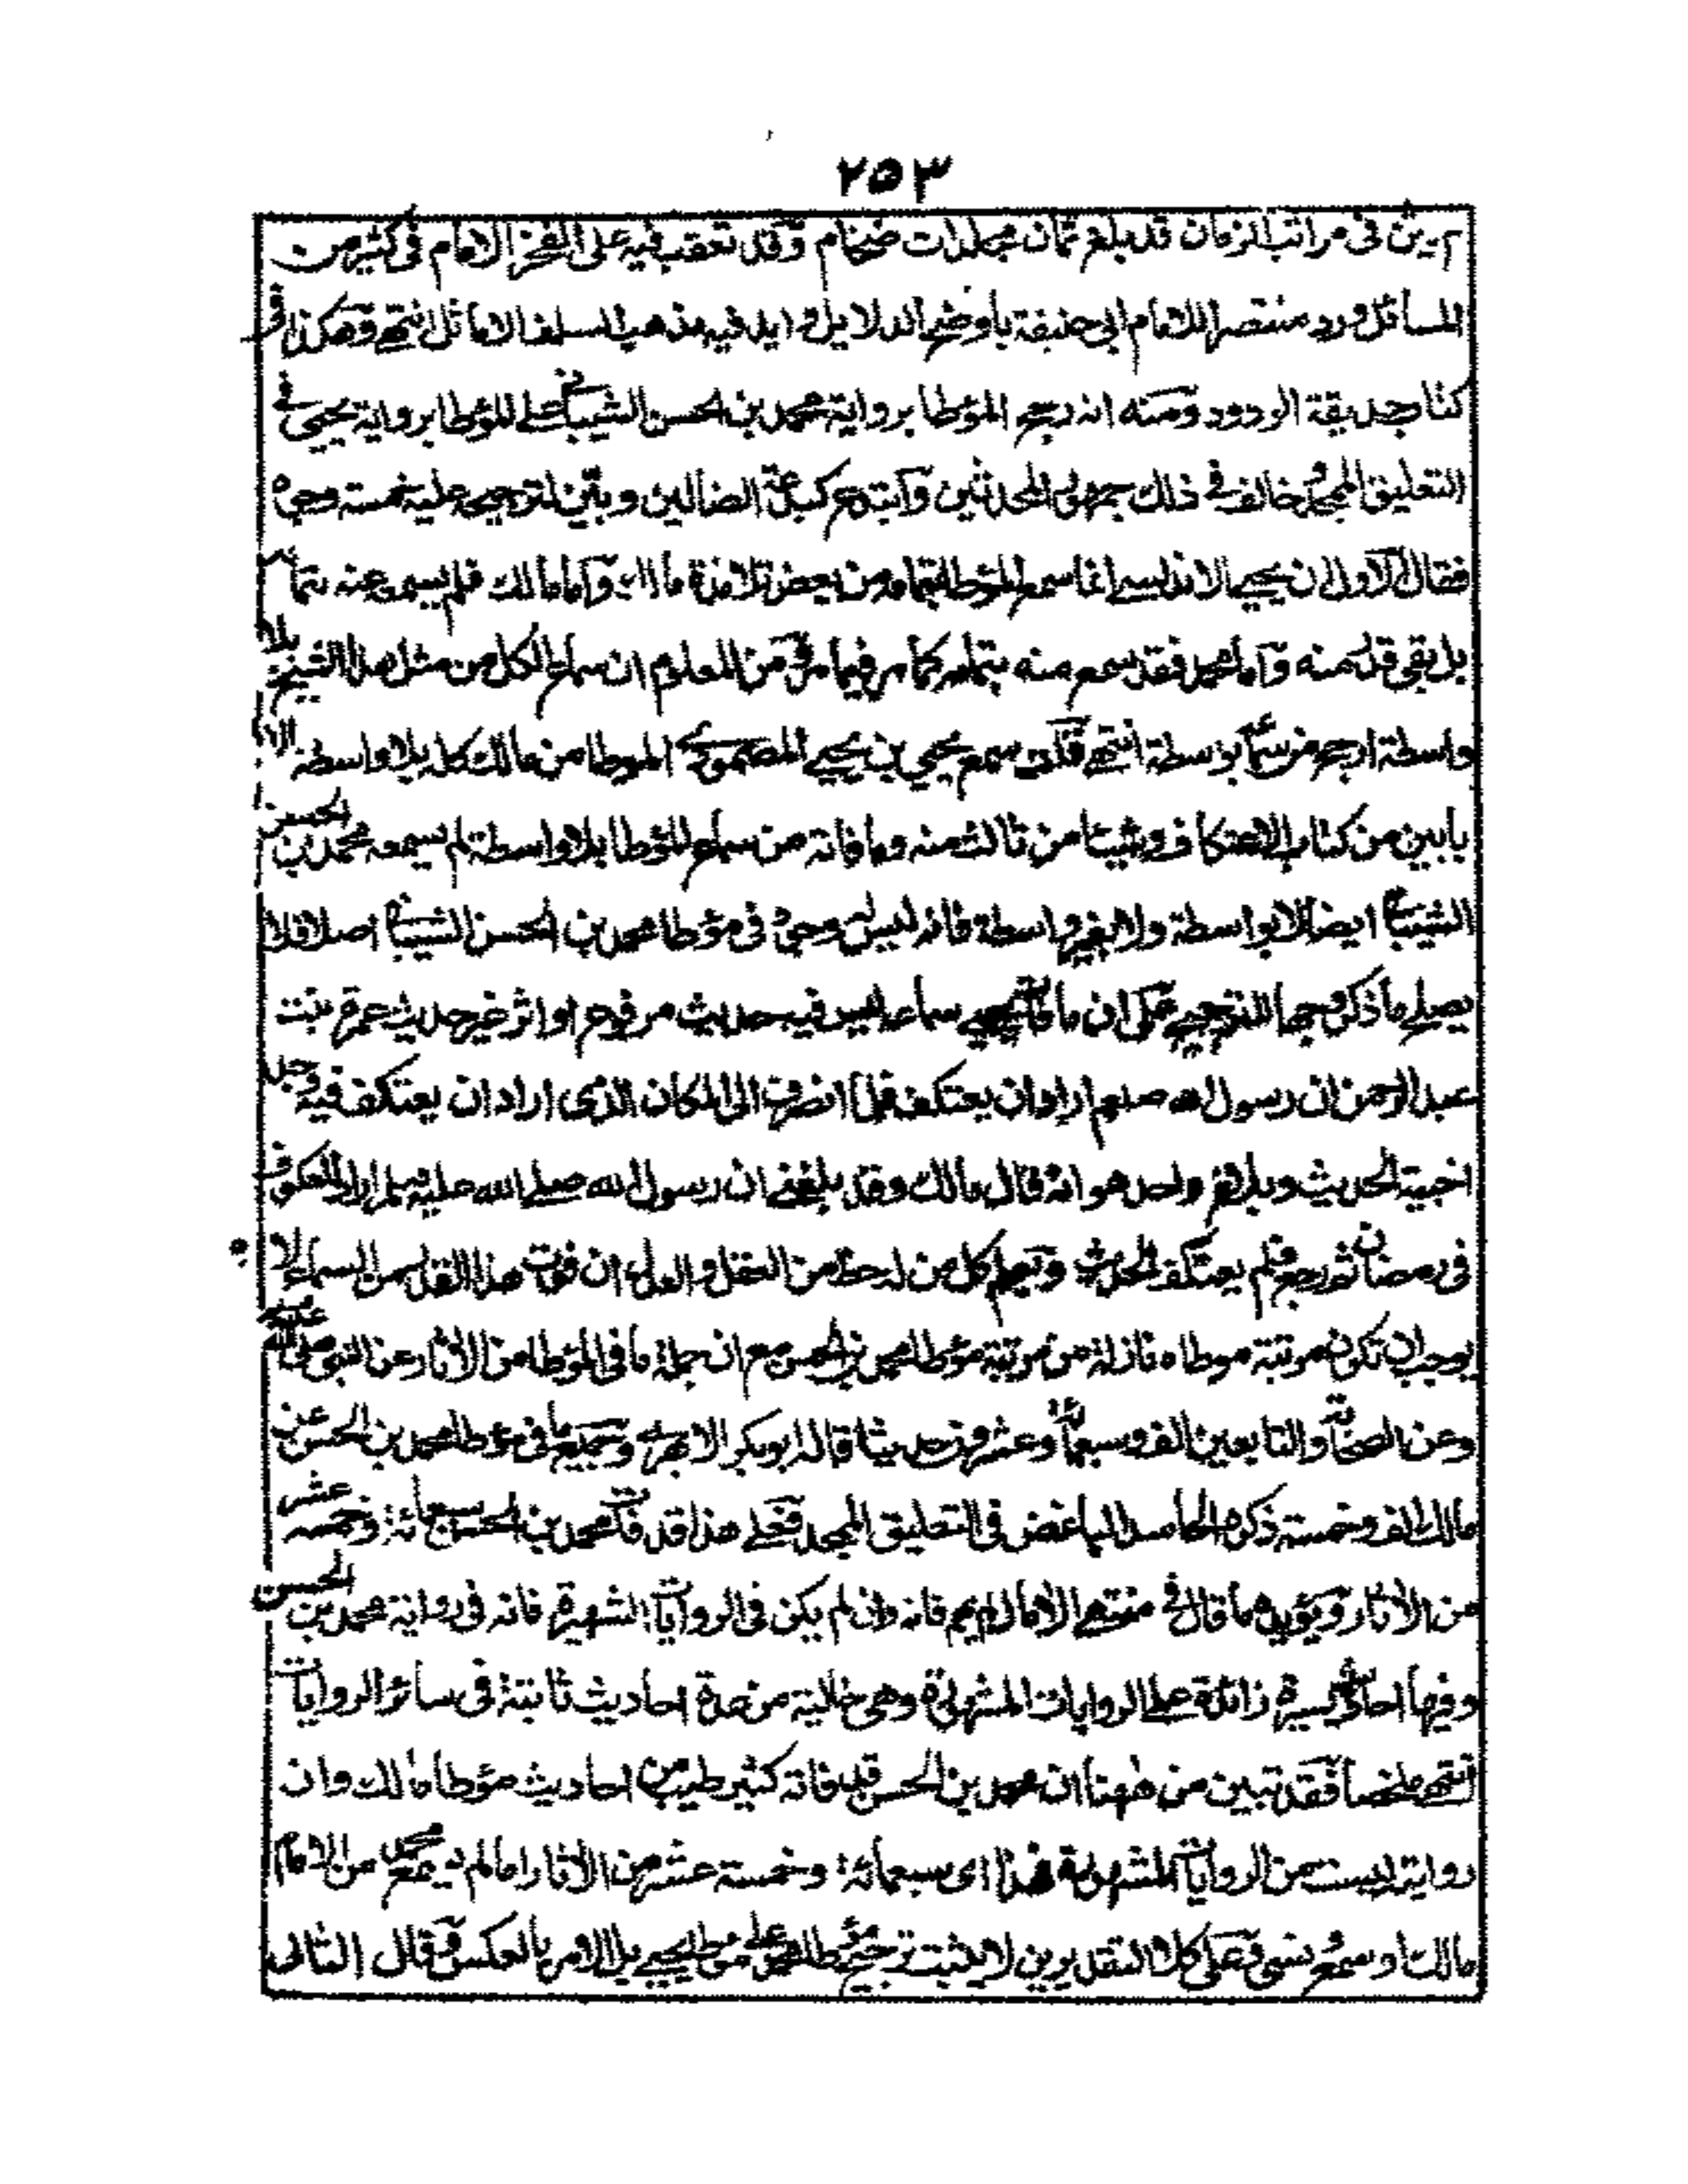 ٢٥٣
في مراتب الزمان قد بلغ ثمان مجلدات ضخام وقد تعقب فيه على الفخر الامام في كثير من
المسائل ورد منتصرا للامام ابي حنيفة باوضح الدلايل وايد فيه مذهب السلف الاماثل انتهى وهكذا في
كتاب حديقة الورود ومنه انه رجح المؤطا برواية محمد بن الحسن الشيباني على المؤطا برواية يحيى في
التعليق الممجد وخالف في ذلك جمهور المحدثين وابتدع كبدعة الضالين وبين لترجيحه عليه خمسة وجوه
فقال الاول ان يحيى الاندلسي انما سمع المؤطا بتمامه من بعض تلامذة مالك واما مالك فلم يسمع عنه بتمامه
بل بقي قدر منه واما محمد فقد سمع منه بتمامه كما مر فيما مر ومن المعلوم ان سماع الكل من مثل هذا الشيخ بلا
واسطة ارجح من سماعه بواسطة انتهى قلت سمع يحيى بن يحيى المصمودي الموطا من مالك كله بلا واسطة الا
بابين من كتاب الاعتكاف وشيئا من ثالث منه وما فاته من سماع المؤطا بلا واسطة لم يسمعه محمد بن الحسن
الشيباني ايضا لا بواسطة ولا بغير واسطة فانه ليس له وجود في مؤطا محمد بن الحسن الشيباني اصلا فلا
يصلح ما ذكر وجها للترجيح على ان ما فات يحيى سماعه ليس فيه حديث مرفوع او اثر غير حديث عمرة بنت
عبد الرحمن ان رسول الله صلعم اراد ان يعتكف فلما انصرف الى المكان الذي اراد ان يعتكف فيه وجد
اخبية الحديث وبلاغ واحد هو انه قال مالك وقد بلغني ان رسول الله صلى الله عليه وسلم اراد العكوف
في رمضان ثم رجع فلم يعتكف الحديث ويعلم كل من له حظ من العقل والعلم ان فوت هذا القدر من السماع لا
يوجب ان تكون مرتبة موطاه نازلة من مرتبة مؤطا محمد بن الحسن مع ان جملة ما في المؤطا من الاثار عن النبي صلى الله عليه
وعن الصحابة والتابعين الف وسبعمائة وعشرون حديثا قاله ابو بكر الابهري وجميع ما في مؤطا محمد بن الحسن عن
مالك الف وخمسة ذكره الحاسد المباغض في التعليق الممجد فعلى هذا قد فات محمد بن الحسن سبعمائة وخمسة عشر
من الاثار ويؤيده ما قال في منتهى الامال فانه وان لم يكن في الروايات الشهيرة فانه في رواية محمد بن الحسن
وفيها احاديث يسيرة زائدة على الروايات المشهورة وهي خالية من عدة احاديث ثابتة في سائر الروايات
انتهى ملخصا فقد تبين من ههنا ان محمد بن الحسن قد فاته كثير طيب من احاديث مؤطا مالك وان
روايته ليست من الروايات المشهورة فهذا اى سبعمائة وخمسة عشر من الاثار اما لم يسمع محمد من الامام
مالك او سمع ونسي وعلى كلا التقديرين لا يثبت ترجيح مؤطا محمد على مؤطا يحيى بل الامر بالعكس وقال الثاني